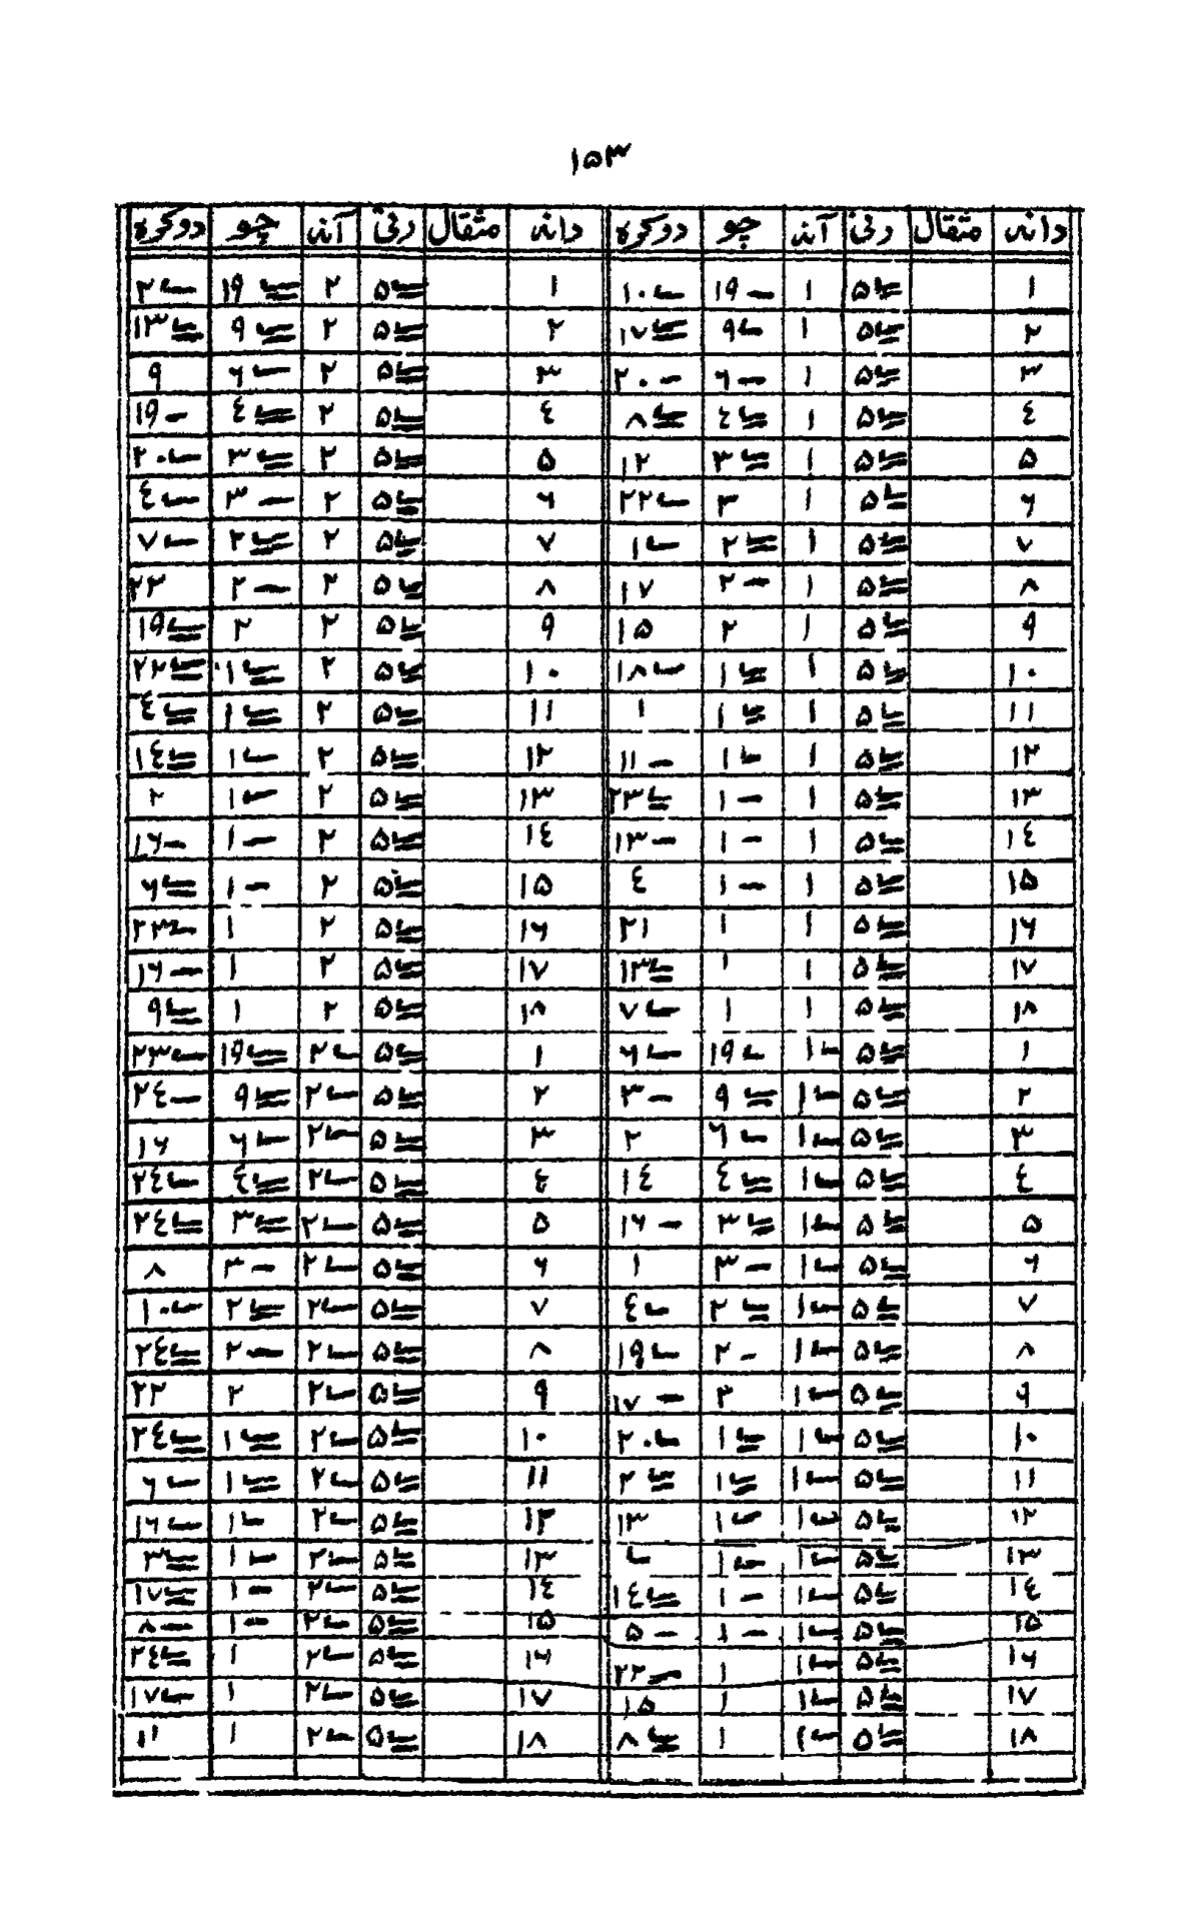 ۱۵۳
دانه مثقال رتی آنه چو دوکره دانه مثقال رتی آنه چو دوکره
۱ ۵ ۱ ۱۹ ۱۰ ۱ ۵ ۲ ۱۹ ۲
۲ ۵ ۱ ۹ ۱۷ ۲ ۵ ۲ ۹ ۱۳
۳ ۵ ۱ ۶ ۲۰ ۳ ۵ ۲ ۶ ۹
٤ ۵ ۱ ٤ ۸ ٤ ۵ ۲ ٤ ۱۹
۵ ۵ ۱ ۳ ۱۲ ۵ ۵ ۲ ۳ ۲۰
۶ ۵ ۱ ۳ ۲۲ ۶ ۵ ۲ ۳ ٤
۷ ۵ ۱ ۲ ۱ ۷ ۵ ۲ ۲ ۷
۸ ۵ ۱ ۲ ۱۷ ۸ ۵ ۲ ۲ ۲۳
۹ ۵ ۱ ۲ ۱۵ ۹ ۵ ۲ ۲ ۱۹
۱۰ ۵ ۱ ۱ ۱۸ ۱۰ ۵ ۲ ۱ ۲۲
۱۱ ۵ ۱ ۱ ۱ ۱۱ ۵ ۲ ۱ ٤
۱۲ ۵ ۱ ۱ ۱۱ ۱۲ ۵ ۲ ۱ ۱٤
۱۳ ۵ ۱ ۱ ۲۳ ۱۳ ۵ ۲ ۱ ۲
۱٤ ۵ ۱ ۱ ۱۳ ۱٤ ۵ ۲ ۱ ۱۶
۱۵ ۵ ۱ ۱ ٤ ۱۵ ۵ ۲ ۱ ۶
۱۶ ۵ ۱ ۱ ۲۱ ۱۶ ۵ ۲ ۱ ۲۳
۱۷ ۵ ۱ ۱ ۱۳ ۱۷ ۵ ۲ ۱ ۱۶
۱۸ ۵ ۱ ۱ ۷ ۱۸ ۵ ۲ ۱ ۹
۱ ۵ ۱ ۱۹ ۶ ۱ ۵ ۲ ۱۹ ۲۳
۲ ۵ ۱ ۹ ۳ ۲ ۵ ۲ ۹ ۲٤
۳ ۵ ۱ ۶ ۲ ۳ ۵ ۲ ۶ ۱۶
٤ ۵ ۱ ٤ ۱٤ ٤ ۵ ۲ ٤ ۲٤
۵ ۵ ۱ ۳ ۱۶ ۵ ۵ ۲ ۳ ۲٤
۶ ۵ ۱ ۳ ۱ ۶ ۵ ۲ ۳ ۸
۷ ۵ ۱ ۲ ٤ ۷ ۵ ۲ ۲ ۱۰
۸ ۵ ۱ ۲ ۱۹ ۸ ۵ ۲ ۲ ۲٤
۹ ۵ ۱ ۲ ۱۷ ۹ ۵ ۲ ۲ ۲۲
۱۰ ۵ ۱ ۱ ۲۰ ۱۰ ۵ ۲ ۱ ۲٤
۱۱ ۵ ۱ ۱ ۲ ۱۱ ۵ ۲ ۱ ۶
۱۲ ۵ ۱ ۱ ۱۳ ۱۲ ۵ ۲ ۱ ۱۶
۱۳ ۵ ۱ ۱ ۱۳ ۵ ۲ ۱ ۳
۱٤ ۵ ۱ ۱ ۱٤ ۱٤ ۵ ۲ ۱ ۱۷
۱۵ ۵ ۱ ۱ ۵ ۱۵ ۵ ۲ ۱ ۸
۱۶ ۵ ۱ ۱ ۲۲ ۱۶ ۵ ۲ ۱ ۲٤
۱۷ ۵ ۱ ۱ ۱۵ ۱۷ ۵ ۲ ۱ ۱۷
۱۸ ۵ ۱ ۱ ۸ ۱۸ ۵ ۲ ۱ ۱۱